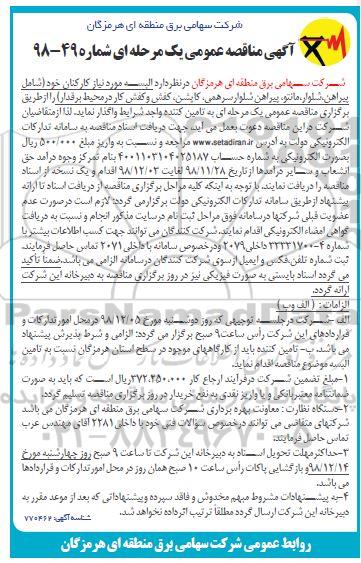 شرکت سهامی برق منطقه ای هرمزگان
آگهی مناقصه عمومی یک مرحله ای شماره ۴۹-۹۸
شرکت سهامی برق منطقه ای هرمزگان درنظردارد البسه مورد نیاز کارکنان خود (شامل
پیراهن،شلوار،مانتو، پیراهن شلوارسرهمی، کاپشن، کفش وکفش کار درمحیط برقدار) را ازطریق
برگزاری مناقصه عمومی یک مرحله ای به تامین کننده واجد شرایط واگذار نماید. لذا ازمتقاضیان
شرکت در این مناقصه دعوت بعمل می آید، جهت دریافت اسناد مناقصه به سامانه تدارکات
الکترونیکی دولت به آدرس www.setadiran.ir مراجعه و نسبت به واریز مبلغ ۵۰۰/۰۰۰ ریال
بصورت الکترونیکی به شماره حساب ۴۰۰۱۱۰۳۱۰۴۰۲۵۱۸۷ بنام تمرکز وجوه درآمد حق
انشعاب و سایر درآمدها از تاریخ ۹۸/۱۱/۲۸ لغایت ۹۸/۱۲/۰۳ اقدام و یک نسخه از اسناد
مناقصه را دریافت نمایند. با توجه به اینکه کلیه مراحل برگزاری مناقصه از دریافت اسناد تا ارائه
پیشنهاد ازطریق سامانه تدارکات الکترونیکی دولت برگزارمی گردد؛ لازم است درصورت عدم
عضویت قبلی شرکتها درسامانه فوق مراحل ثبت نام درسایت مذکور انجام و نسبت به دریافت
گواهی امضاء الکترونیکی اقدام نمایند. شرکت کنندگان می توانند جهت کسب اطلاعات بیشتر با
شماره ۴-۳۳۳۳۱۷۰۰ داخلی ۲۰۷۹ ودرخصوص سامانه با داخلی ۲۰۷۱ تماس حاصل فرمایند.
ثبت شماره تلفن،فکس و ایمیل ازسوی شرکت کنندگان درسامانه الزامی می باشد.ضمنا تأکید
می گردد اسناد بایستی به صورت فیزیکی نیز در روز برگزاری مناقصه به دبیرخانه این شرکت
ارائه گردد.
الزامات : ( الف وب )
الف -شرکت درجلسه توجیهی که روز دوشنبه مورخ ۹۸/۱۲/۰۵ درمحل امور تدارکات و
قراردادهای این شرکت رأس ساعت ۹ صبح برگزار می گردد؛ الزامی و شرط پذیرش پیشنهاد
می باشد. ب- تامین کننده باید از کارگاههای موجود در سطح استان هرمزگان نسبت به تامین
البسه موضوع مناقصه اقدام نماید.
۱-مبلغ تضمین شرکت درفرآیند ارجاع کار ۳۷۲.۴۵۰.۰۰۰ ریال است که باید به صورت
ضمانتنامه معتبربانکی و یا واریز نقدی به نفع خریدار در روز برگزاری مناقصه تسلیم گردد.
۲-دستگاه نظارت : معاونت بهره برداری شرکت سهامی برق منطقه ای هرمزگان می باشد
شرکتهای متقاضی می توانند درخصوص سؤالات فنی خود با داخلی ۲۲۸۱ آقای مهندس عرب
تماس حاصل فرمایند.
۳-حداکثرمهلت تحویل اسناد به دبیرخانه این شرکت تا ساعت ۹ صبح روز چهارشنبه مورخ
۹۸/۱۲/۱۴ و بازگشایی پاکات رأس ساعت ۱۰ صبح همان روز در محل امور تدارکات و قراردادها
می باشد.
۴-به پیشنهادات مشروط مبهم مخدوش و فاقد سپرده وپیشنهاداتی که بعد از موعد مقرر به
دبیرخانه این شرکت ارسال گردد مطلقاً ترتیب اثرداده نخواهد شد.
شناسه آگهی: ۷۷۰۴۶۲
روابط عمومی شرکت سهامی برق منطقه ای هرمزگان